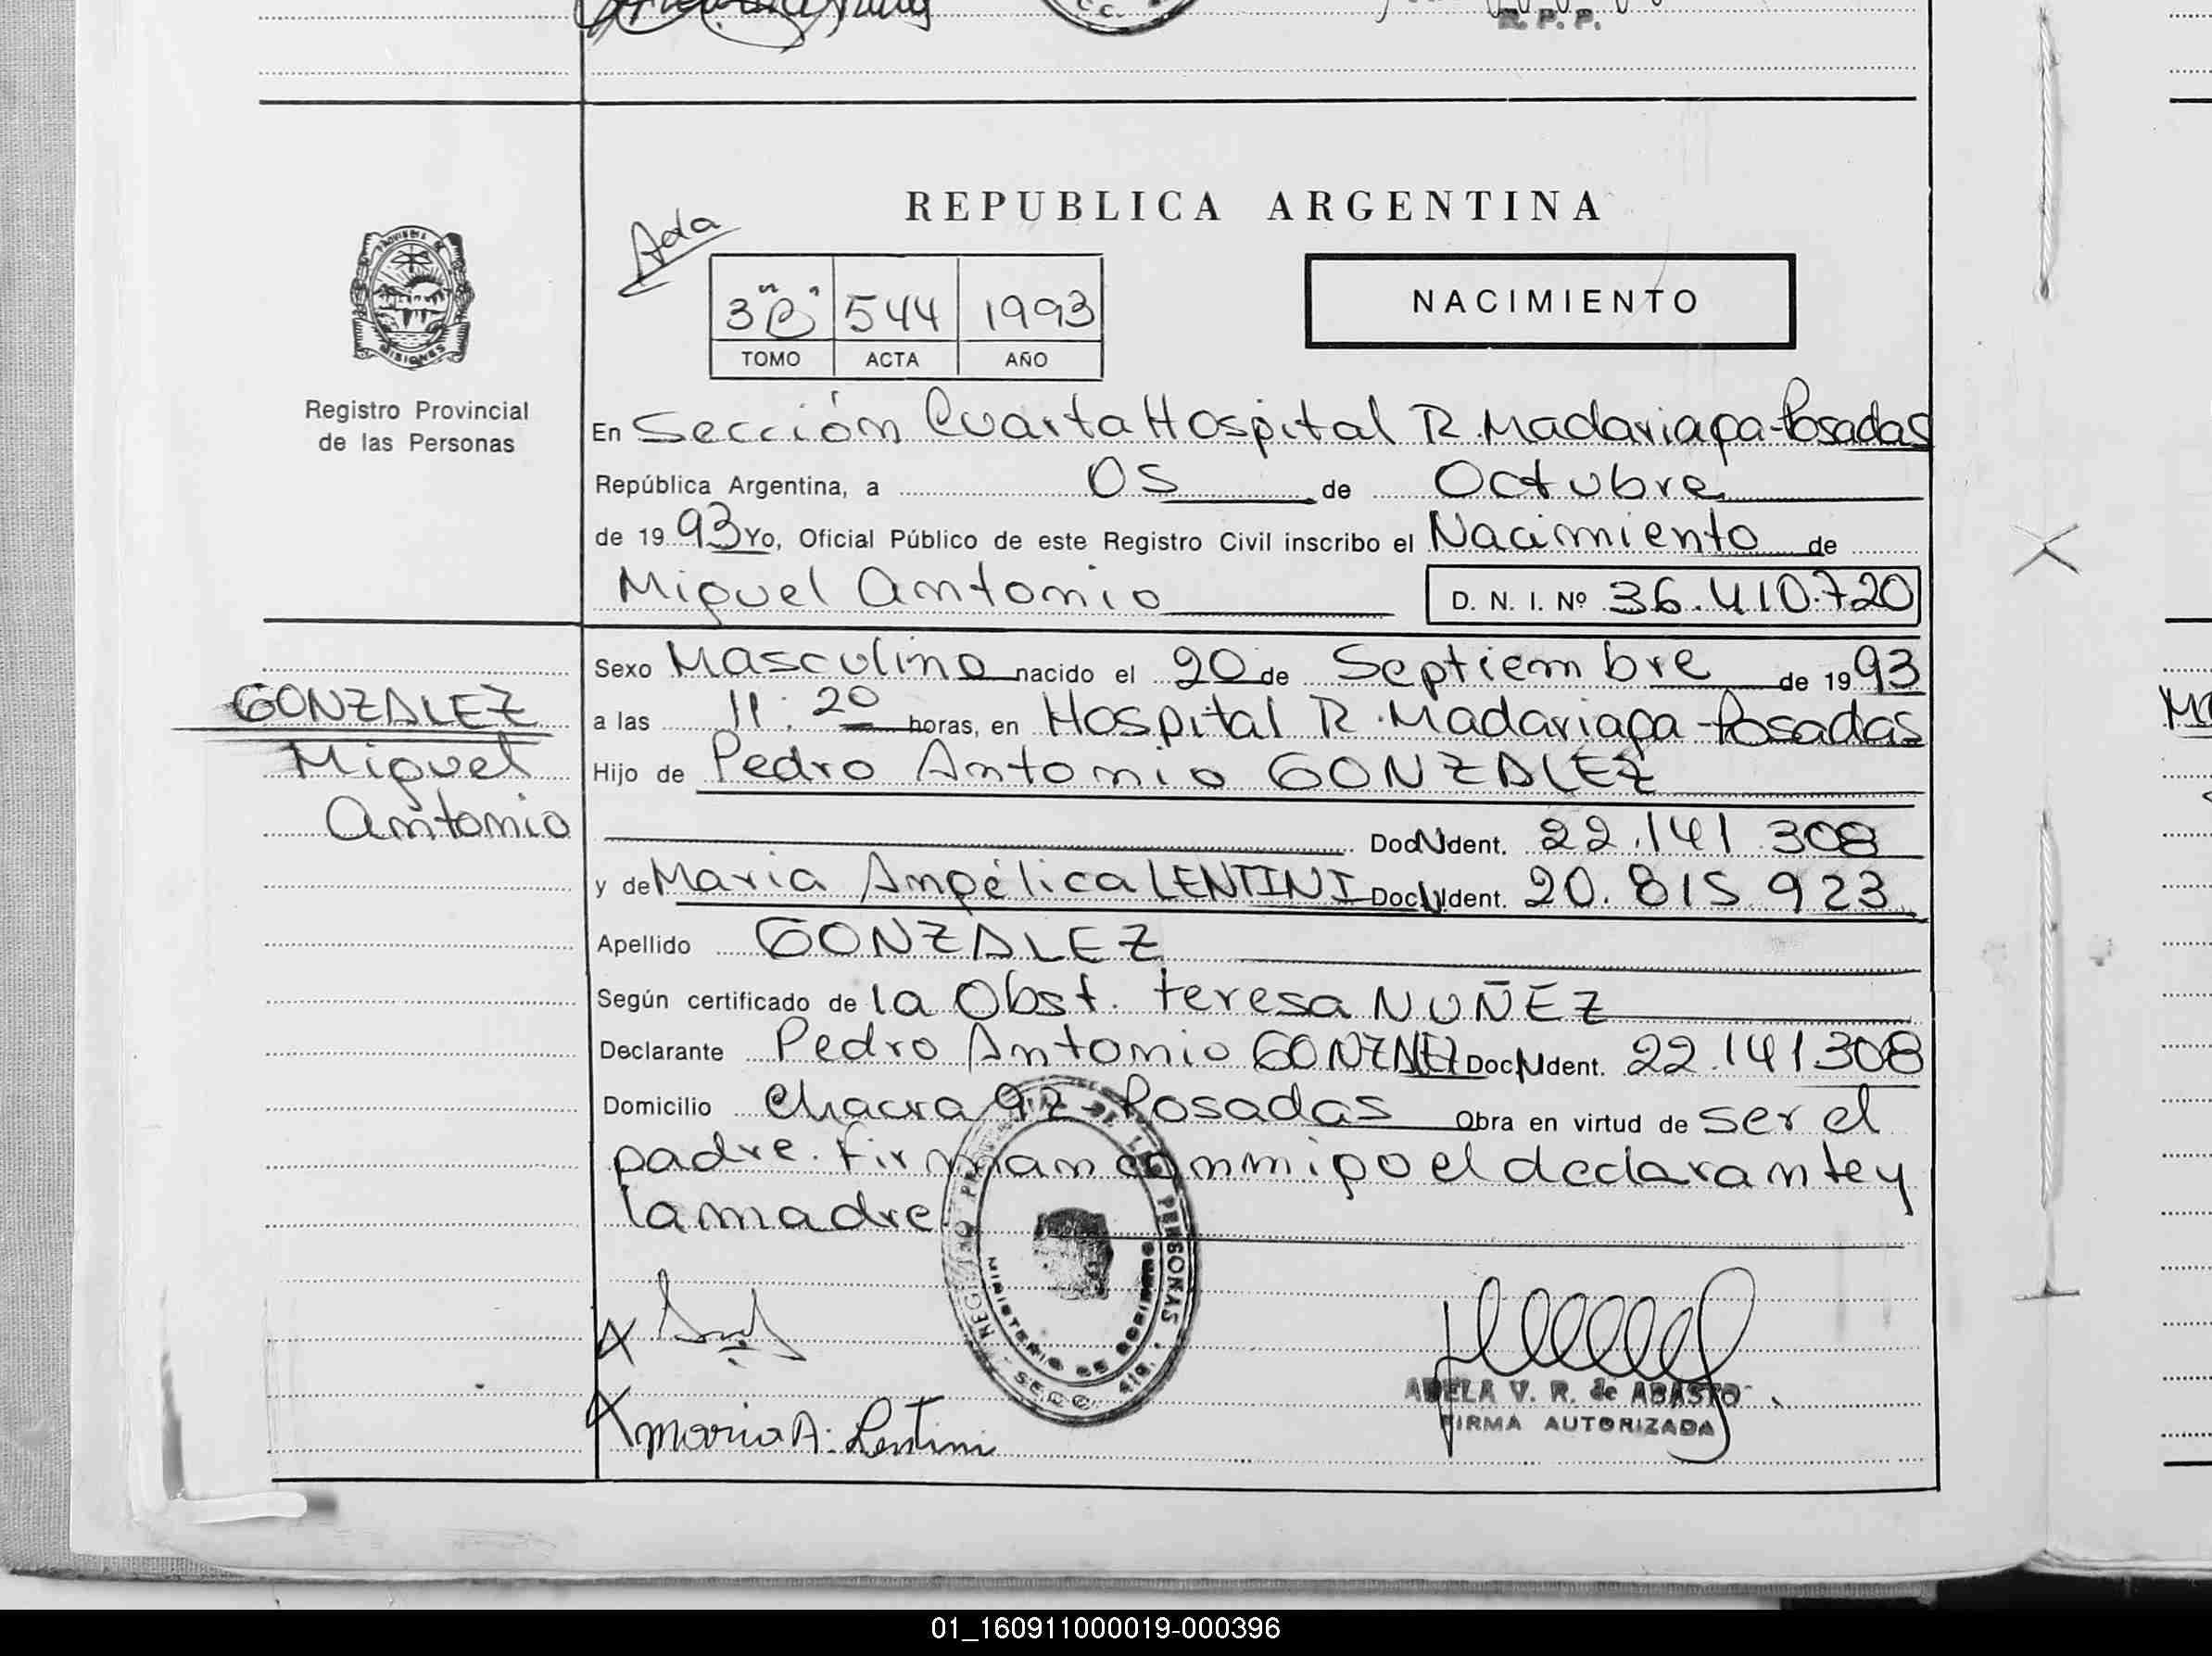 R. P. P.
REPUBLICA ARGENTINA
Ada
3 "B" 544 1993
TOMO ACTA AÑO
NACIMIENTO
PROVINCIA DE
MISIONES
Registro Provincial
de las Personas
En Sección Cuarta Hospital R. Madariaga-Posadas
República Argentina, a 05 de Octubre
de 1993 Yo, Oficial Público de este Registro Civil inscribo el Nacimiento de
Miguel Antonio D. N. I. Nº 36.410.720
Sexo Masculino nacido el 20 de Septiembre de 1993
GONZALEZ
Miguel
Antonio
a las 11:20 horas, en Hospital R. Madariaga-Posadas
Hijo de Pedro Antonio GONZALEZ
Doc N Ident. 22.141.308
y de Maria Angélica LENTINI Doc N Ident. 20.815.923
Apellido GONZALEZ
Según certificado de la Obst. teresa NUÑEZ
Declarante Pedro Antonio GONZALEZ Doc N Ident. 22.141.308
Domicilio Chacra 92-Posadas Obra en virtud de ser el
padre. Firman conmigo el declarante y
la madre
REGISTRO PROVINCIAL DE LAS PERSONAS
MINISTERIO DE GOBIERNO
SECC. 4ta.
ADELA V. R. de ABASTO
FIRMA AUTORIZADA
Maria A. Lentini
01_160911000019-000396